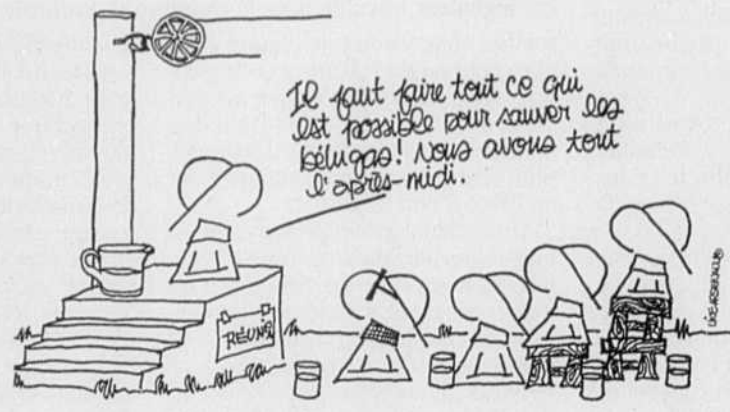 Il faut faire tout ce qui
est possible pour sauver les
bélugas! Nous avons tout
l'après-midi.
RÉUNI